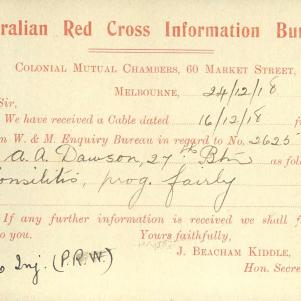 ralian Red Cross Information Bu
COLONIAL MUTUAL CHAMBERS, 60 MARKET STREET,
MELBOURNE, 24/12/18
Sir,
We have received a Cable dated 16/12/18 fr
n W. & M. Enquiry Bureau in regard to No. 2625
A. A. Dawson, 27th Btn as fol
onsilitis, prog. fairly
If any further information is received we shall f
o you. Yours faithfully,
J. BEACHAM KIDDLE,
Inj. (P.R.W.) Hon. Secre